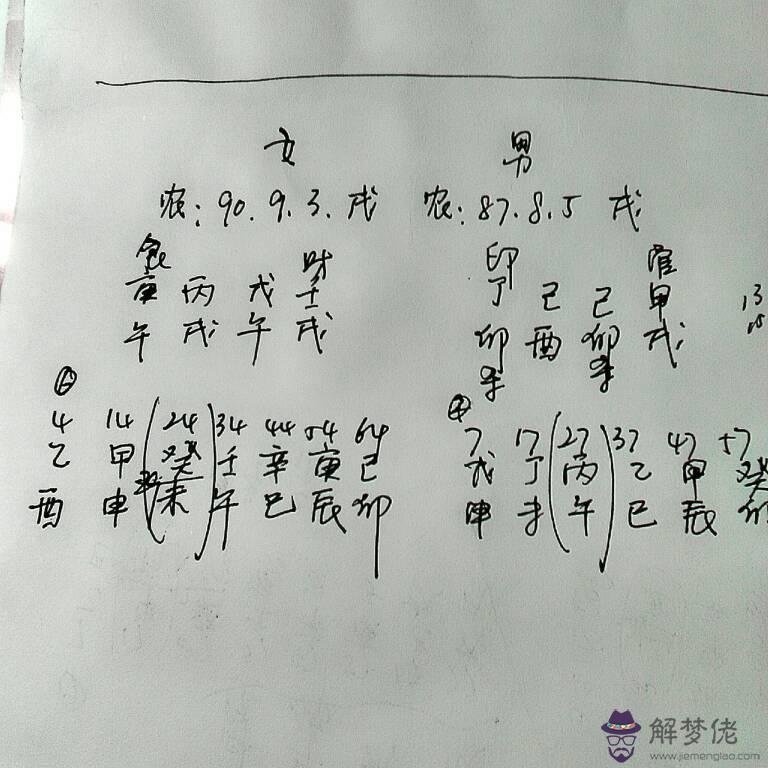 女 男
农: 90.9.3.戌 农: 87.8.5 戌
食 财 印 官
庚 丙 戊 壬 丁 己 己 甲
午 戌 午 戌 卯 酉 卯 戌
4 14 24 34 44 54 64 7 17 27 37 47 57
乙 甲 癸 壬 辛 庚 己 戊 丁 丙 乙 甲 癸
酉 申 未 午 巳 辰 卯 申 未 午 巳 辰 卯
13
解梦佬
www.jiemenglao.com